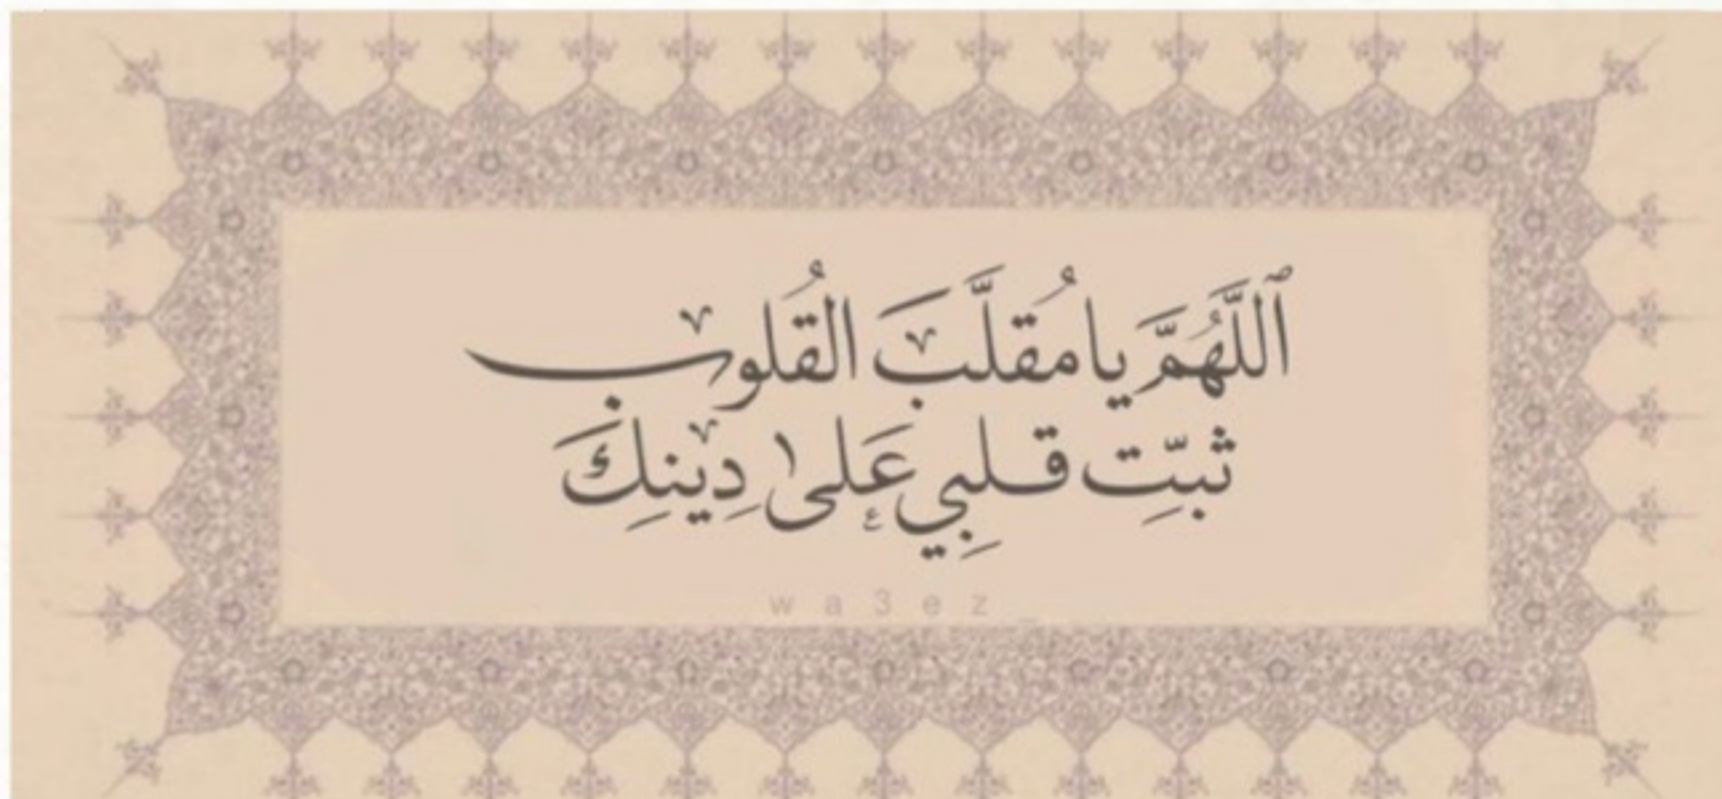 ٱللَّهُمَّ يا مُقلَّبَ القُلوب
ثبتِّ قلبِي عَلى دِينِكَ
wa3ez_